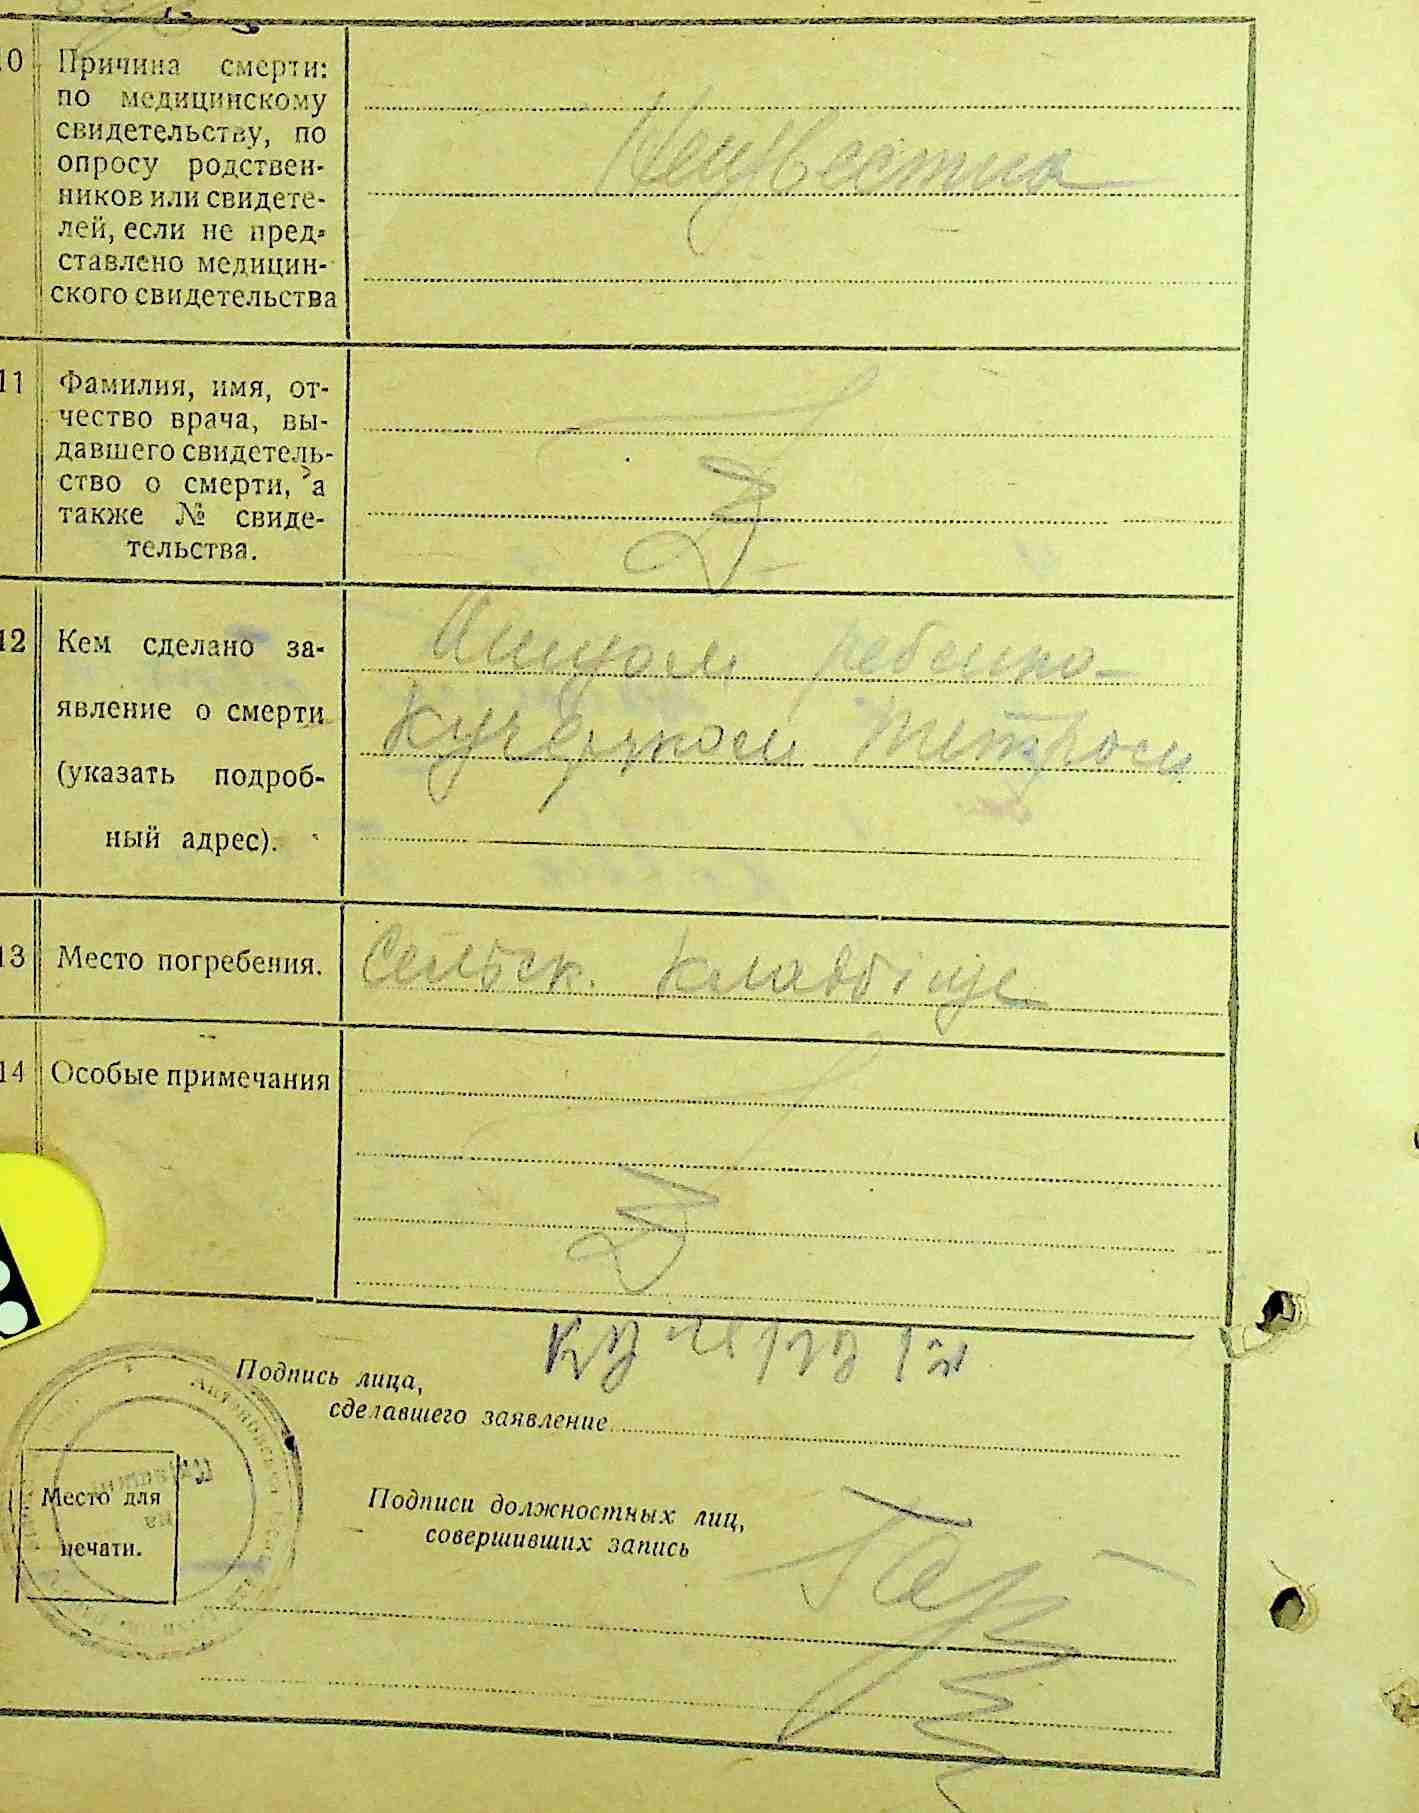 10 Причина смерти:
по медицинскому
свидетельству, по
опросу родствен-
ников или свидете-
лей, если не пред-
ставлено медицин-
ского свидетельства
Неизвестна
11 Фамилия, имя, от-
чество врача, вы-
давшего свидетель-
ство о смерти, а
также № свиде-
тельства.
12 Кем сделано за-
явление о смерти
(указать подроб-
ный адрес).
ребенка
13 Место погребения.
Сельск. кладбище
14 Особые примечания
Подпись лица,
сделавшего заявление
Место для
печати.
Подписи должностных лиц,
совершивших запись